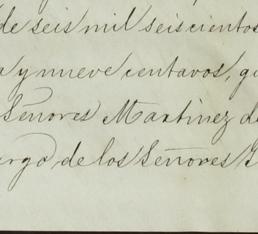 de seis mil seiscientos
a y nueve centavos, qu
Señores Martinez de
argo de los Señores